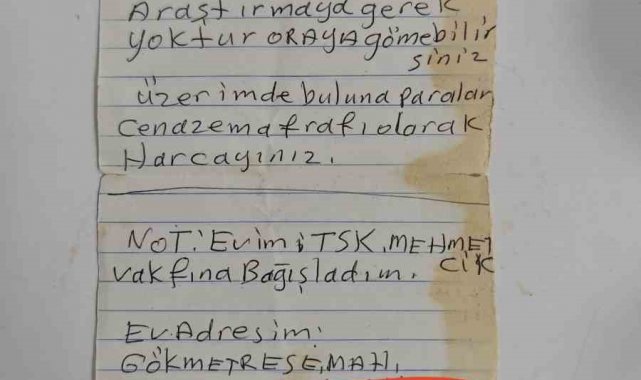 Araştırmaya gerek
yoktur ORAYA gömebilir
siniz
üzerimde buluna paralar
cenazema frafı olarak
Harcayınız.
NOT: Evimi TSK, MEHMET
CİK
vakfına Bağışladım.
Ev Adresim:
GÖKMETRESE, MAH,